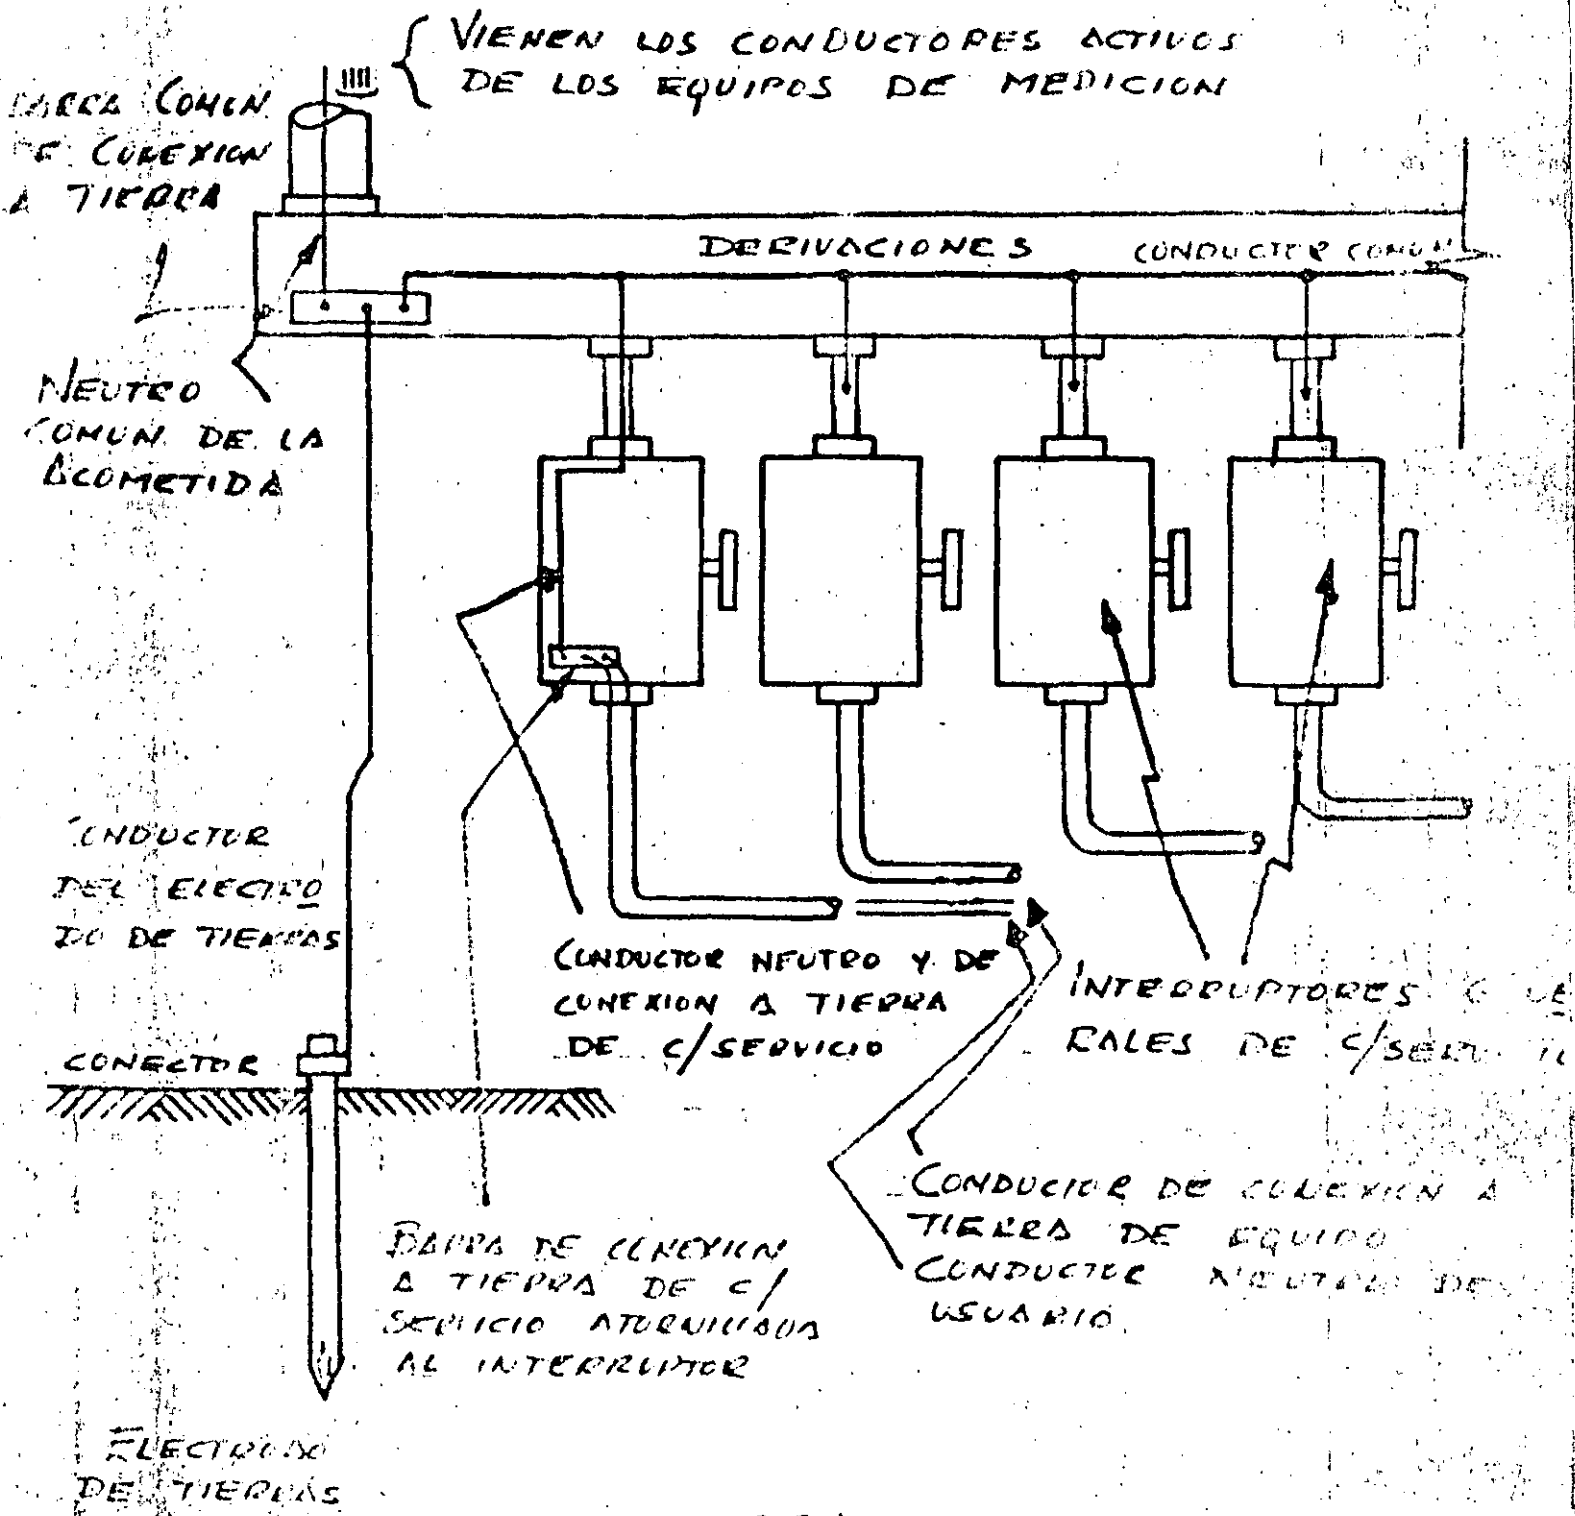 VIENEN LOS CONDUCTORES ACTIVOS
DE LOS EQUIPOS DE MEDICION
BARRA COMUN
DE CONEXION
A TIERRA
DERIVACIONES
CONDUCTOR COMUN
NEUTRO
COMUN DE LA
ACOMETIDA
CONDUCTOR
DEL ELECTRO
DO DE TIERRAS
CONDUCTOR NEUTRO Y DE
CONEXION A TIERRA
DE C/SERVICIO
INTERRUPTORES
RALES DE
CONECTOR
CONDUCTOR DE CONEXION A
TIERRA DE EQUIPO
CONDUCTOR NEUTRO DE
USUARIO
BARRA DE CONEXION
A TIERRA DE C/
SERVICIO ATORNILLADA
AL INTERRUPTOR
ELECTRODO
DE TIERRAS